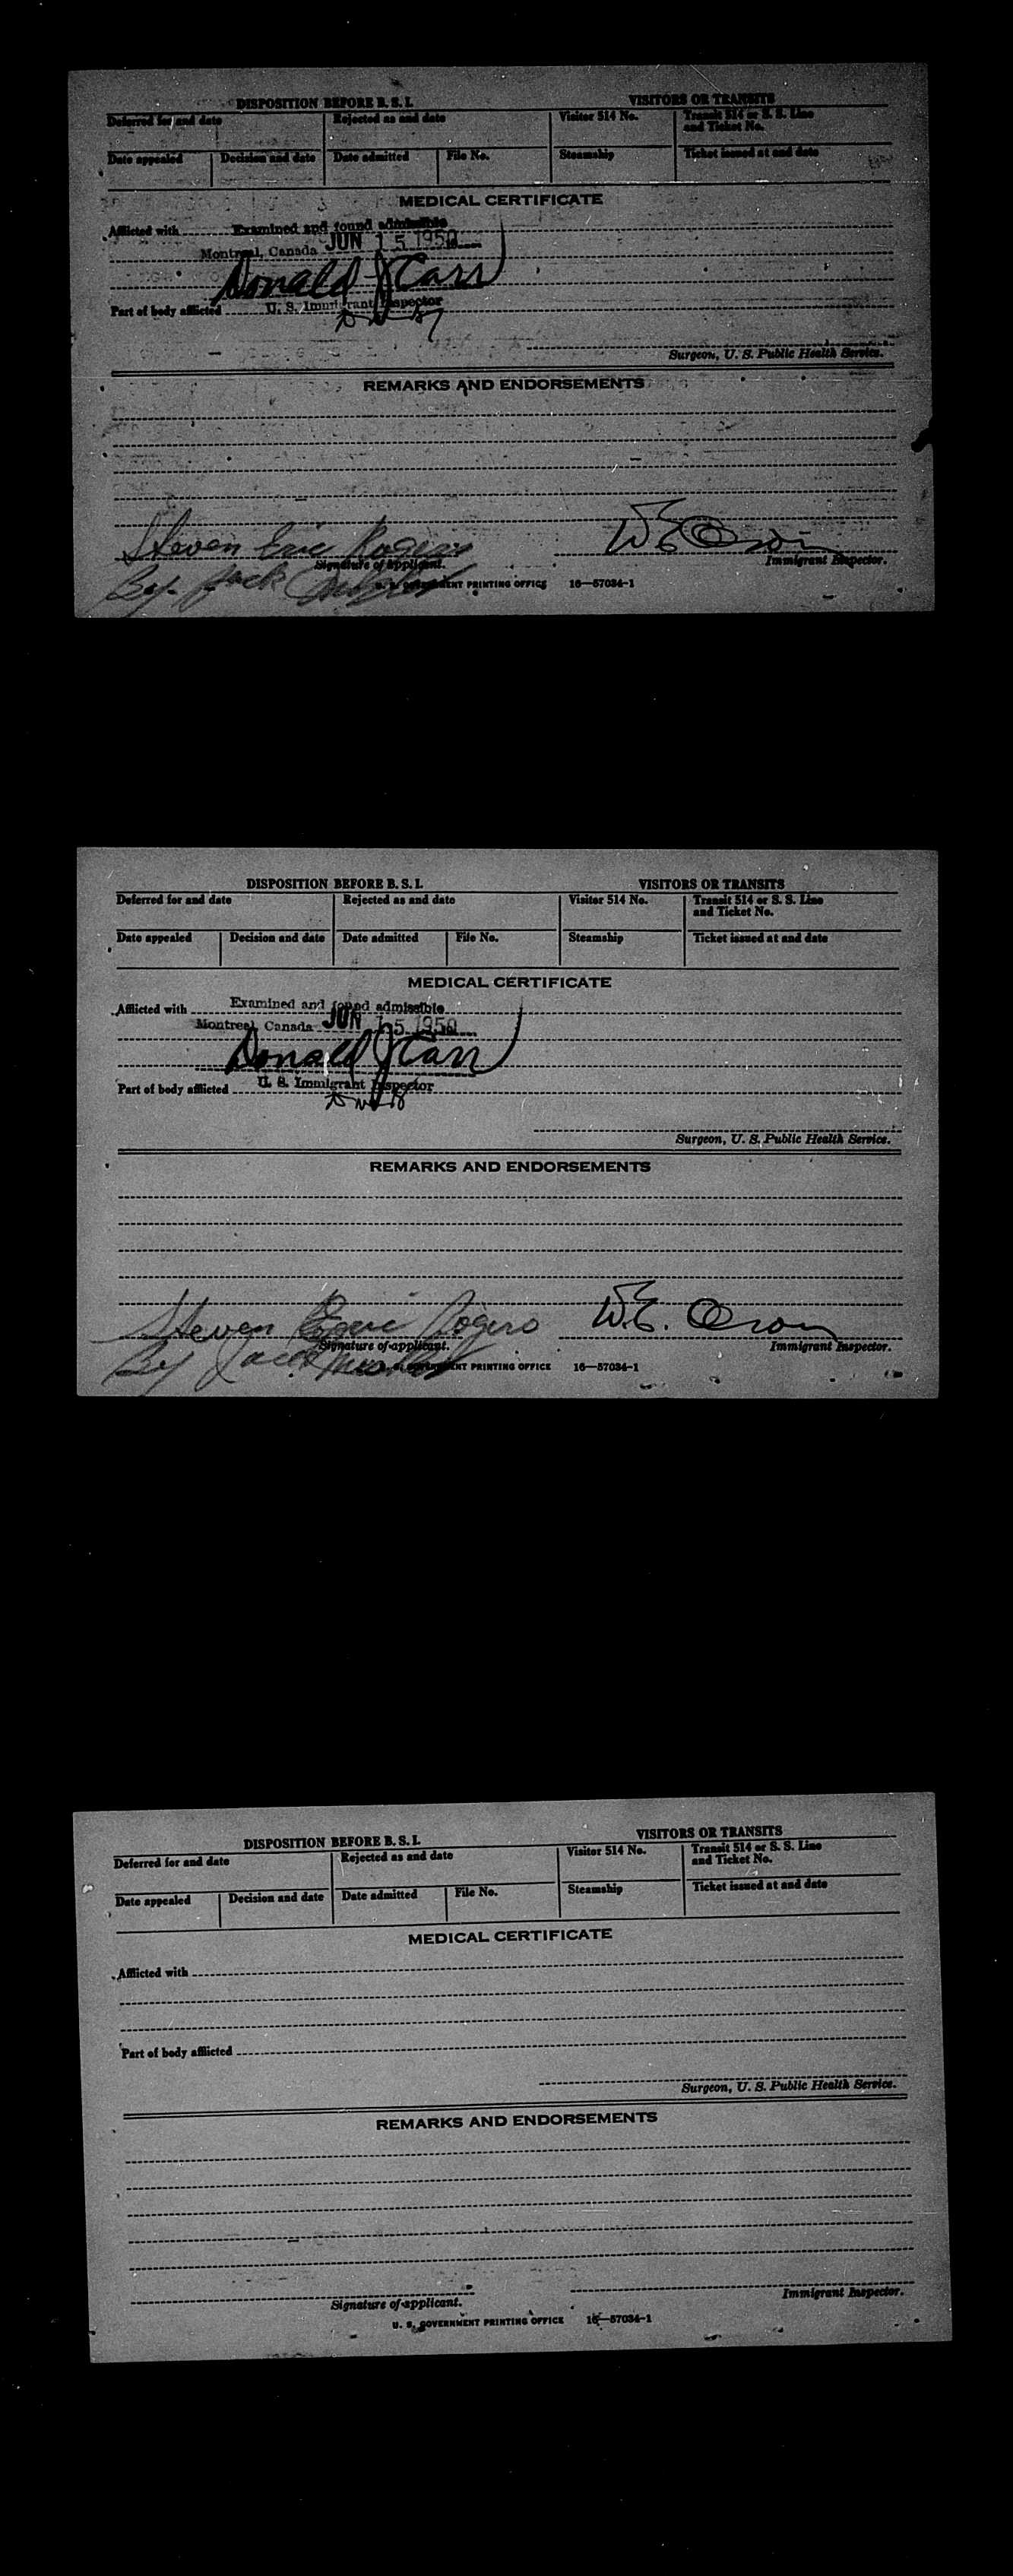 DISPOSITION BEFORE B. S. I.
VISITORS OR TRANSITS
Deferred for and date
Rejected as and date
Visitor 514 No.
Transit 514 or S. S. Line
and Ticket No.
Date appealed
Decision and date
Date admitted
File No.
Steamship
Ticket issued at and date
MEDICAL CERTIFICATE
Afflicted with
Examined and found admissible
Montreal, Canada JUN 15 1950
Donald J Carr
Part of body afflicted
U. S. Immigrant Inspector
Surgeon, U. S. Public Health Service.
REMARKS AND ENDORSEMENTS
Steven Eric Rogers
Signature of applicant.
Immigrant Inspector.
By Jack
U. S. GOVERNMENT PRINTING OFFICE 16—57034-1
DISPOSITION BEFORE B. S. I.
VISITORS OR TRANSITS
Deferred for and date
Rejected as and date
Visitor 514 No.
Transit 514 or S. S. Line
and Ticket No.
Date appealed
Decision and date
Date admitted
File No.
Steamship
Ticket issued at and date
MEDICAL CERTIFICATE
Afflicted with
Examined and found admissible
Montreal, Canada JUN 15 1950
Donald J Carr
Part of body afflicted
U. S. Immigrant Inspector
Surgeon, U. S. Public Health Service.
REMARKS AND ENDORSEMENTS
Steven Rogers W.E.
Signature of applicant.
Immigrant Inspector.
By Jack
U. S. GOVERNMENT PRINTING OFFICE 16—57034-1
DISPOSITION BEFORE B. S. I.
VISITORS OR TRANSITS
Deferred for and date
Rejected as and date
Visitor 514 No.
Transit 514 or S. S. Line
and Ticket No.
Date appealed
Decision and date
Date admitted
File No.
Steamship
Ticket issued at and date
MEDICAL CERTIFICATE
Afflicted with
Part of body afflicted
Surgeon, U. S. Public Health Service.
REMARKS AND ENDORSEMENTS
Signature of applicant.
Immigrant Inspector.
U. S. GOVERNMENT PRINTING OFFICE 16—57034-1